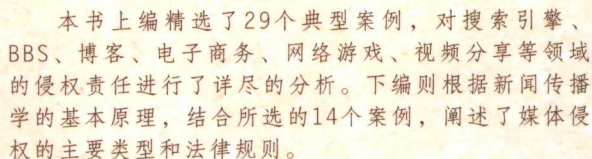 本书上编精选了29个典型案例，对搜索引擎、
BBS、博客、电子商务、网络游戏、视频分享等领域
的侵权责任进行了详尽的分析。下编则根据新闻传播
学的基本原理，结合所选的14个案例，阐述了媒体侵
权的主要类型和法律规则。